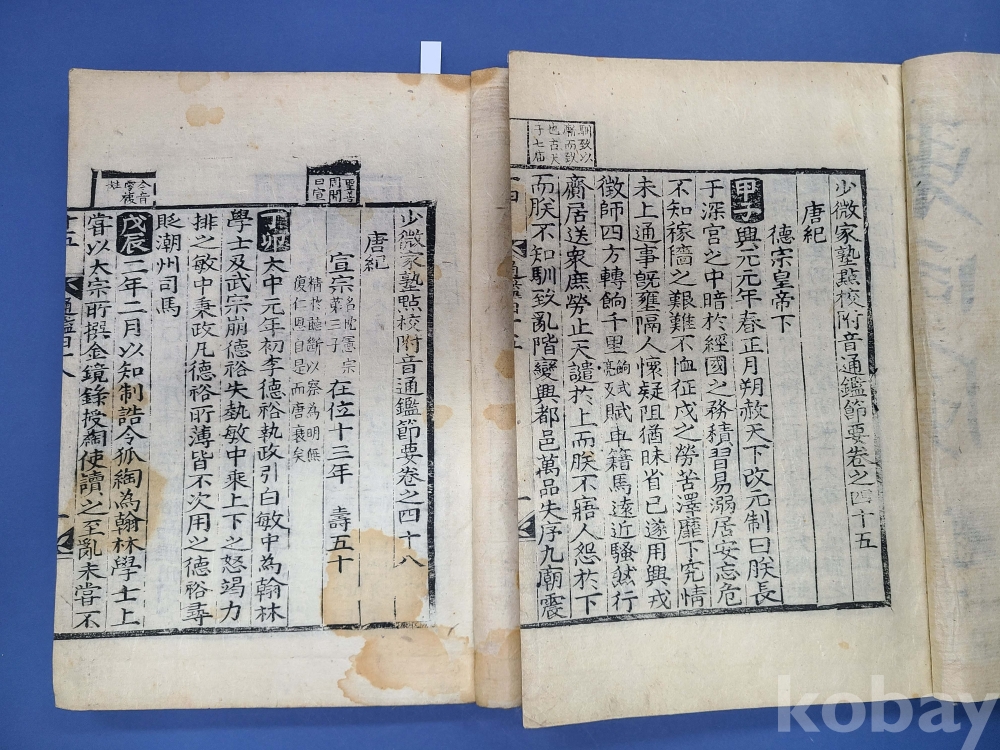 馴致以
漸而致
也古天
子七庙
少微家塾點校附音通鑑節要卷之四十五
唐紀
德宗皇帝下
甲子興元元年春正月朔赦天下改元制曰朕長
于深宮之中暗於經國之務積習易溺居安忘危
不知稼穡之艱難不恤征戍之勞苦澤靡下究情
未上通事旣壅隔人懷疑阻猶昧省己遂用興戎
徵師四方轉餉千里餉式亮反賦車籍馬遠近騷然行
齎居送衆庶勞止天譴於上而朕不寤人怨於下
而朕不知馴致亂階變興都邑萬品失序九廟震
少微家塾點校附音通鑑節要卷之四十八
唐紀
宣宗名忱憲宗第三子在位十三年 壽五十
精於聽斷以察為明無
復仁恩自是而唐衰矣
丁卯大中元年初李德裕執政引白敏中為翰林
學士及武宗崩德裕失埶敏中乘上下之怒竭力
排之敏中秉政凡德裕所薄皆不次用之德裕尋
貶潮州司馬
戊辰二年二月以知制誥令狐綯為翰林學士上
嘗以太宗所撰金鏡錄授綯使讀之至亂未嘗不
kobay